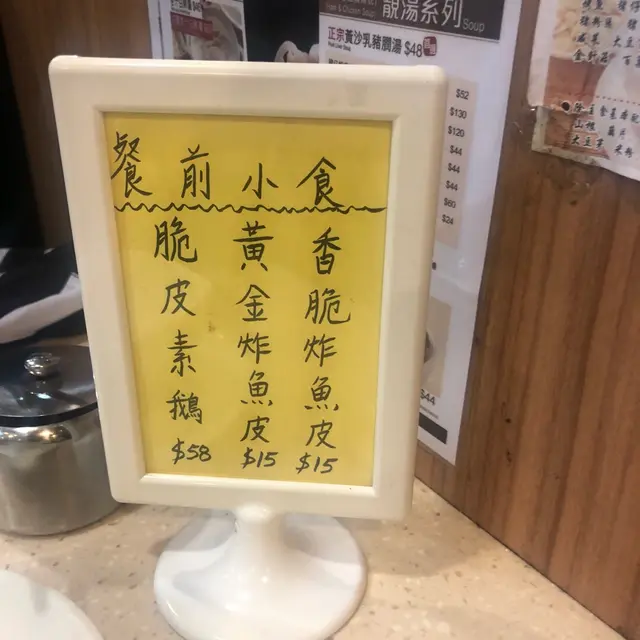 餐前小食
香脆炸魚皮
$15
黃金炸魚皮
$15
脆皮素鵝
$58
靚湯系列
Soup
正宗黃沙乳豬膶湯 $48
$52
$130
$120
$44
$44
$44
$60
$24
$44